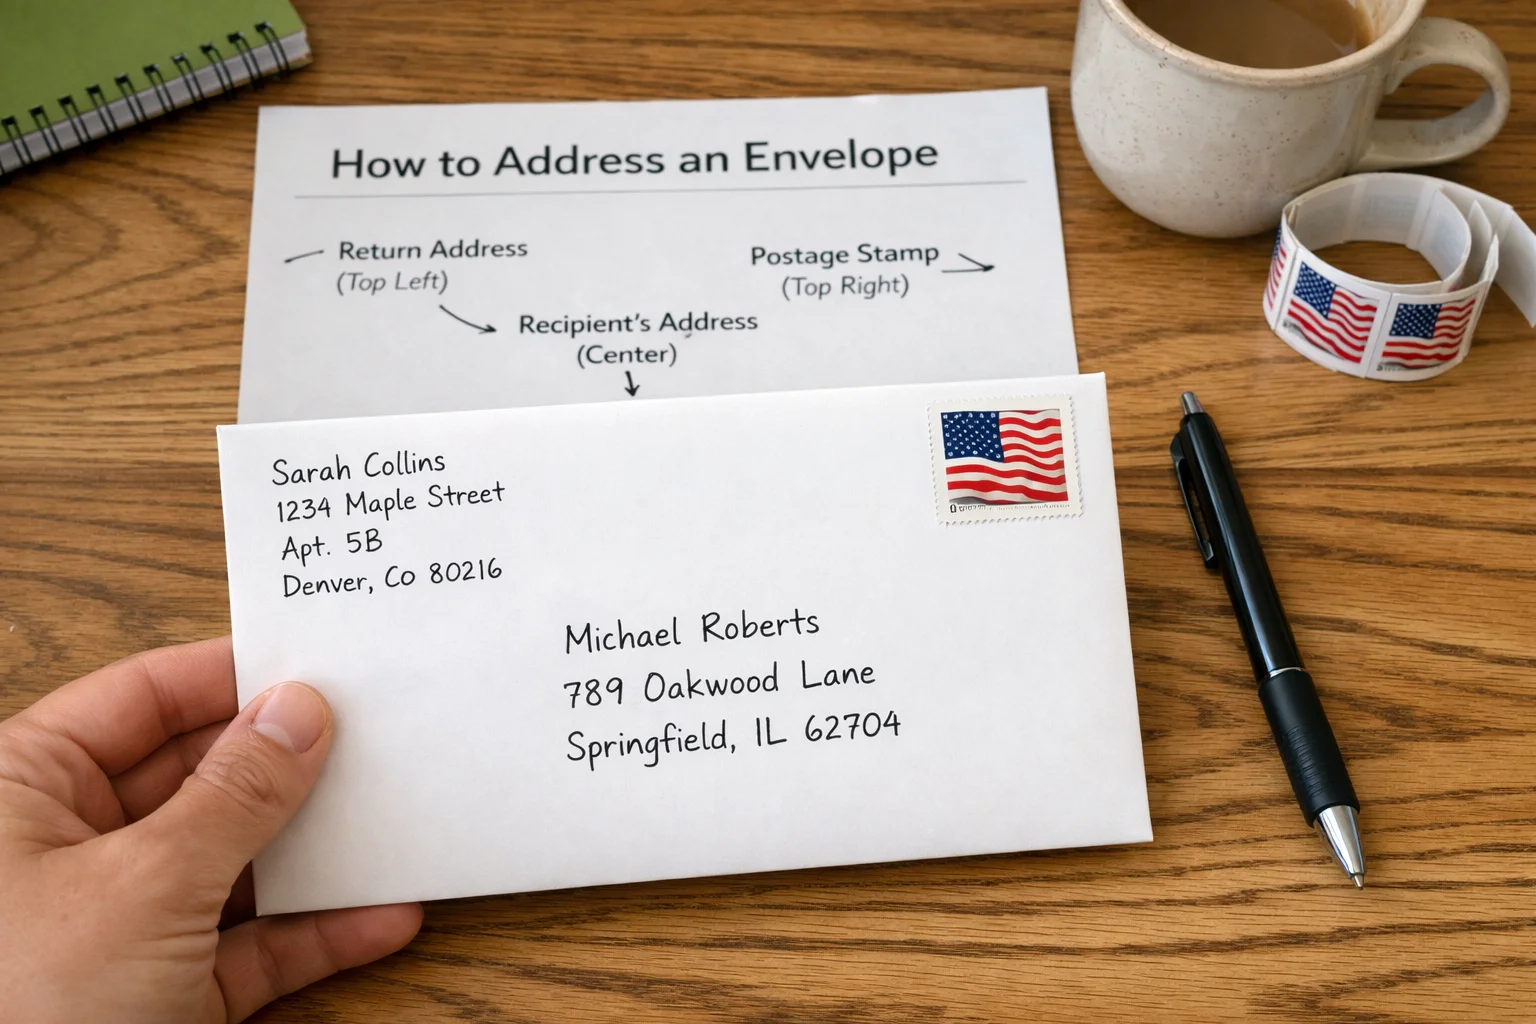 How to Address an Envelope
Return Address
(Top Left)
Postage Stamp
(Top Right)
Recipient's Address
(Center)
Sarah Collins
1234 Maple Street
Apt. 5B
Denver, Co 80216
Michael Roberts
789 Oakwood Lane
Springfield, IL 62704